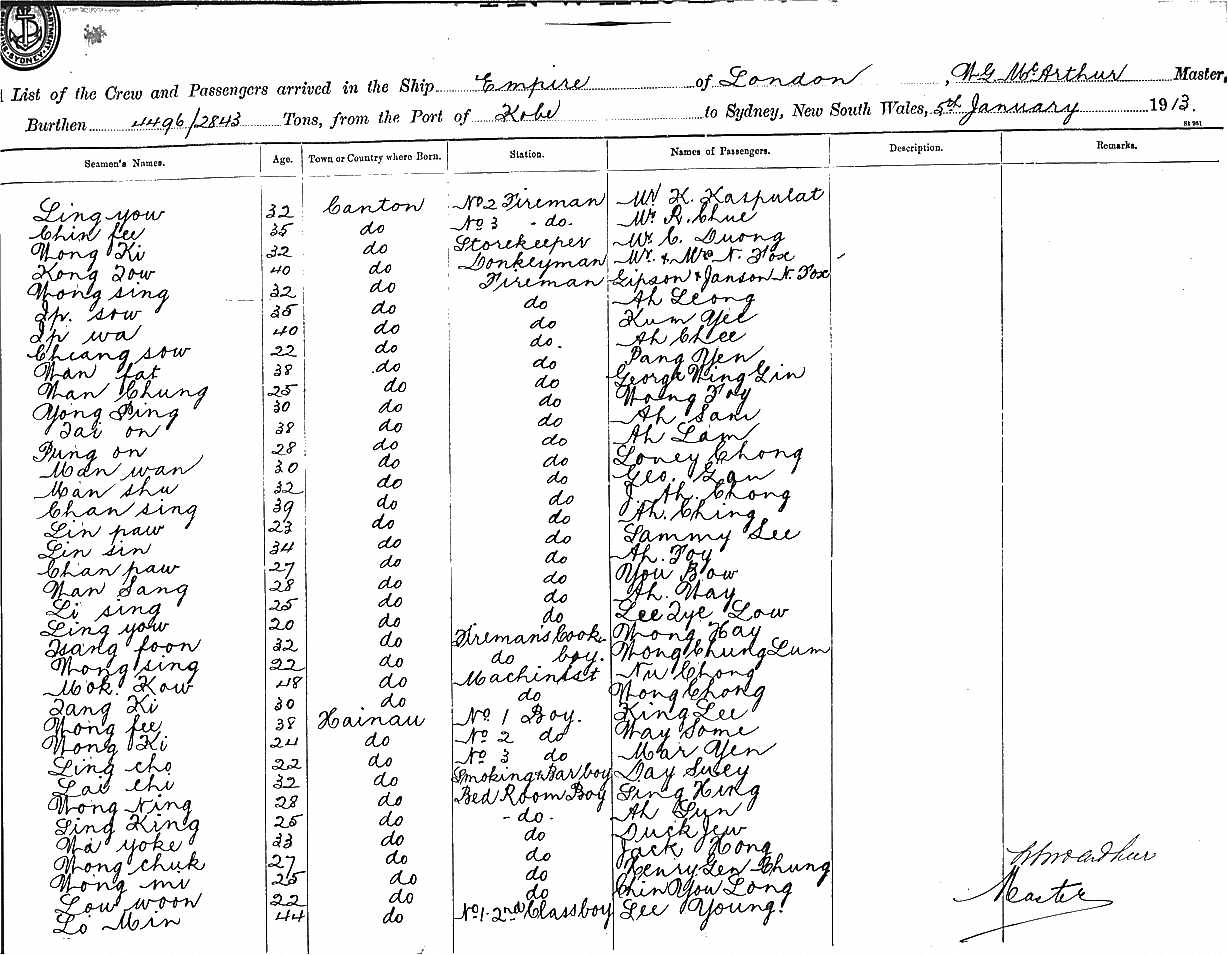 DEPARTMENT SYDNEY
List of the Crew and Passengers arrived in the Ship Empire of London, W G McArthur Master,
Burthen 4496/2843 Tons, from the Port of Kobe to Sydney, New South Wales, 5th January 1913.
Seamen's Names. Age. Town or Country where Born. Station. Names of Passengers. Description. Remarks.
Ling you 32 Canton No 2 Fireman Mr K. Kaspulat
Chin fee 35 do No 3 - do. Mr R. Chue
Wong Ki 32 do Storekeeper Mr C. Duong
Kong Tow 40 do Donkeyman Mr. & Mrs N. Fox
Wong sing 32 do Fireman Gipson & Janson N. Fox
Ip. sow 35 do do Ah Leong
Ip wa 40 do do Kum Yee
Chiang sow 22 do do. Ah Chee
Wan fat 38 do do Pang Yen
Wan Chung 25 do do George Wing Gin
Yong Ping 30 do do Wong Foy
Tai on 38 do do Ah Sam
Pung on 28 do do Ah Lam
Man wan 30 do do Loney Chong
Man shu 32 do do Geo. Gan
Chan sing 39 do do J. Ah. Chong
Lin paw 23 do do Ah. Ching
Lin sin 34 do do Sammy Lee
Chan paw 27 do do Ah. Foy
Wan Sang 28 do do You Bow
Li sing 25 do do Ah. Way
Ling yow 20 do do Lee Tye Low
Tsang foon 32 do Fireman's Cook Wong Hay
Wong sing 22 do do boy. Wong Chung Lum
Mok. Kow 48 do Machinist Nu Chong
Tang Ki 30 do do Wong Chong
Wong fee 38 Hainau No. 1 Boy. King Lee
Wong Ki 24 do No 2 do Way Some
Ling cho 22 do No 3 do Mar Yen
Lai chi 32 do Smoking & Bar boy Day Suey
Wong Ning 28 do Bed Room Boy Sing Hing
Sing King 25 do - do. Ah Sun
Wa yoke 33 do do Duck Jew
Wong chuk 27 do do Jack Hong
Wong mi 25 do do Henry Gen Chung
Low woon 22 do do Chin You Long
Lo Min 44 do No 1. 2nd Class boy Lee Young.
Master